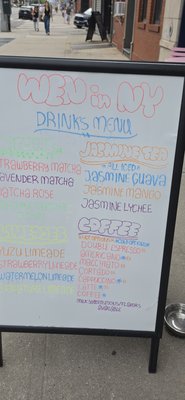 WEN in NY
DRINKS MENU
STRAWBERRY MATCHA
LAVENDER MATCHA
MATCHA ROSE
YUZU LIMEADE
STRAWBERRY LIMEADE
WATERMELON LIMEADE
JASMINE TEA
ALL ICED
JASMINE GUAVA
JASMINE MANGO
JASMINE LYCHEE
COFFEE
DOUBLE ESPRESSO
AMERICANO
MACCHIATO
CORTADO
CAPPUCCINO
LATTE
COFFEE
AVAILABLE